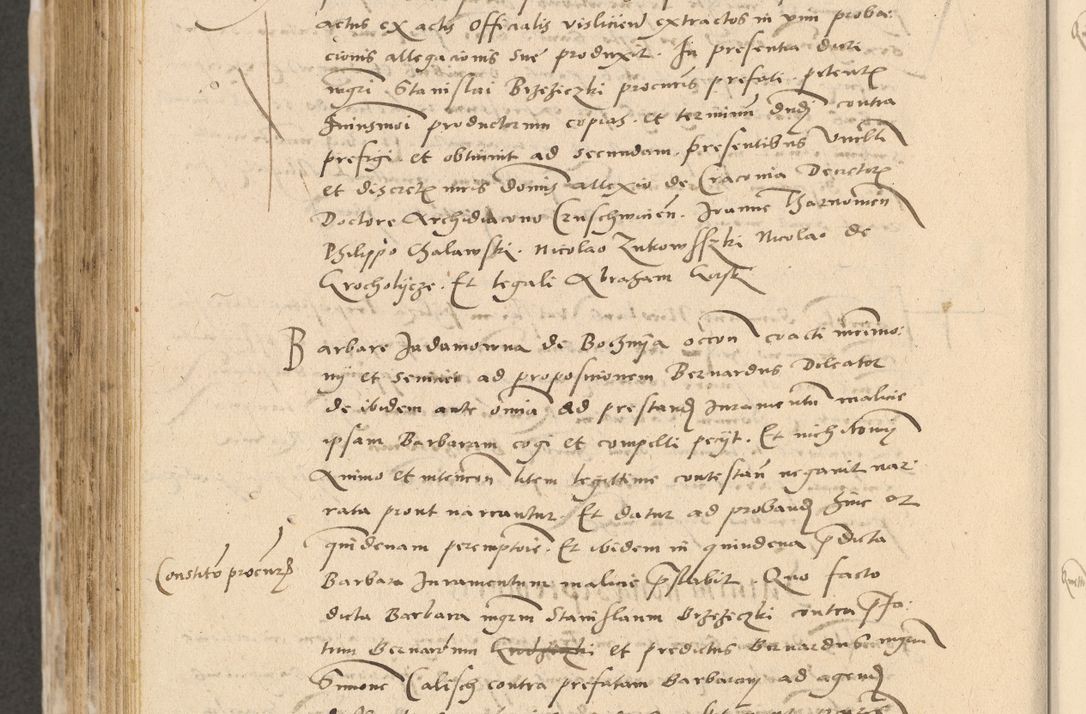 actus ex actis Officialis vislicien extractos in vim proba:
cionis allegacionis sue produxit. In presentia dicti
mgri Stanislai Brzeziczki procuris prefati petentis
huiusmoi productorum copias et terminum dndi contra
prefigi et obtinuit ad secundam. presentibus
et discretis viris dominis Allexio de Craconia Decretor
Doctore Archidiacono Cruschwicien. Joanne Tharnowien
Philippo Chalawski. Nicolao Zukowsszki Nicolao de
Grocholijcze. Et legali Abraham
Barbare Jadamowna de Bochnija coacti
et ad propositionem Bernardus Doleator
de ibidem ante omnia Ad prestand Iuramentum malicie
ipsam Barbaram cogi et compelli pecijt. Et
Animo et intencion litem legittime contestan negavit nar:
rata prout narrantur. Et datur ad proband hinc ad
quindenam peremptorie. Et ibidem in quindena pdicta
Constito procuris
Barbara Iuramentum malicie pstabit. Quo facto
dicta Barbara mgrm Stanislaum Brzeziczki contra pfa:
tum Bernardum et predictus Bernardus mgrum
Simone Calisch contra prefatam Barbaram ad agend